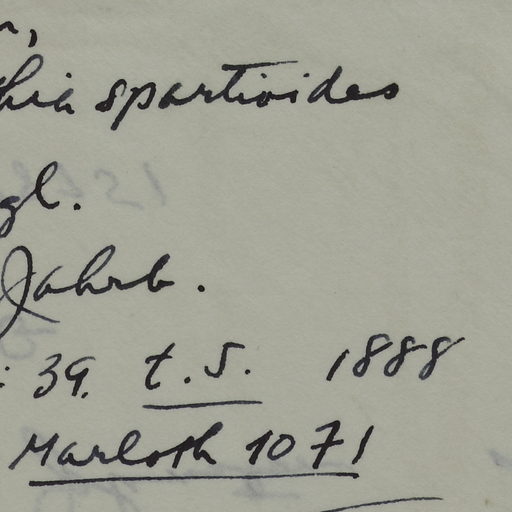 n,
hia spartioides
gl.
Jahrb.
: 39. t.5. 1888
Marloth 1071